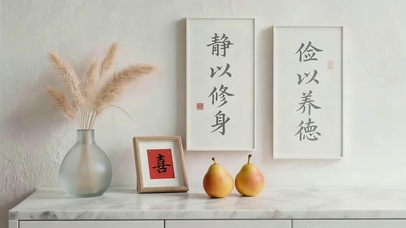 静以修身
俭以养德
喜